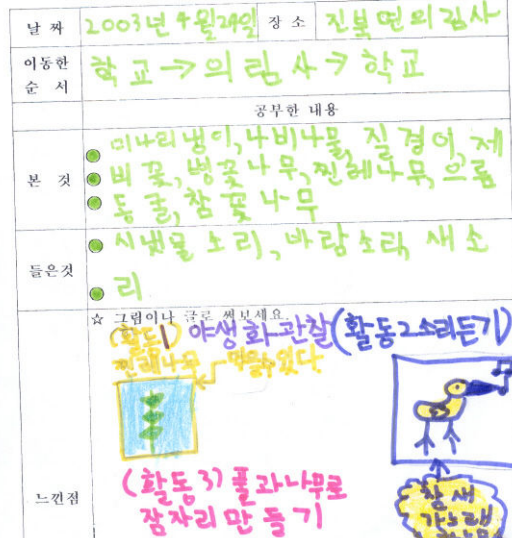 날 짜 2003년 4월 24일 장 소 진북면의림사
이동한 순 서 학교→의림사→학교
공부한 내용
본 것 미나리냉이, 나비나물, 질경이, 제
비꽃, 병꽃나무, 찔레나무, 으름
동굴, 참꽃나무
들은것 시냇물소리, 바람소리, 새소
리
☆ 그림이나 글로 써보세요.
(활동1) 야생화관찰 (활동2소리듣기)
찔레나무 먹을수있다
느낀점
(활동3) 풀과나무로
잠자리만들기
참새
가노래